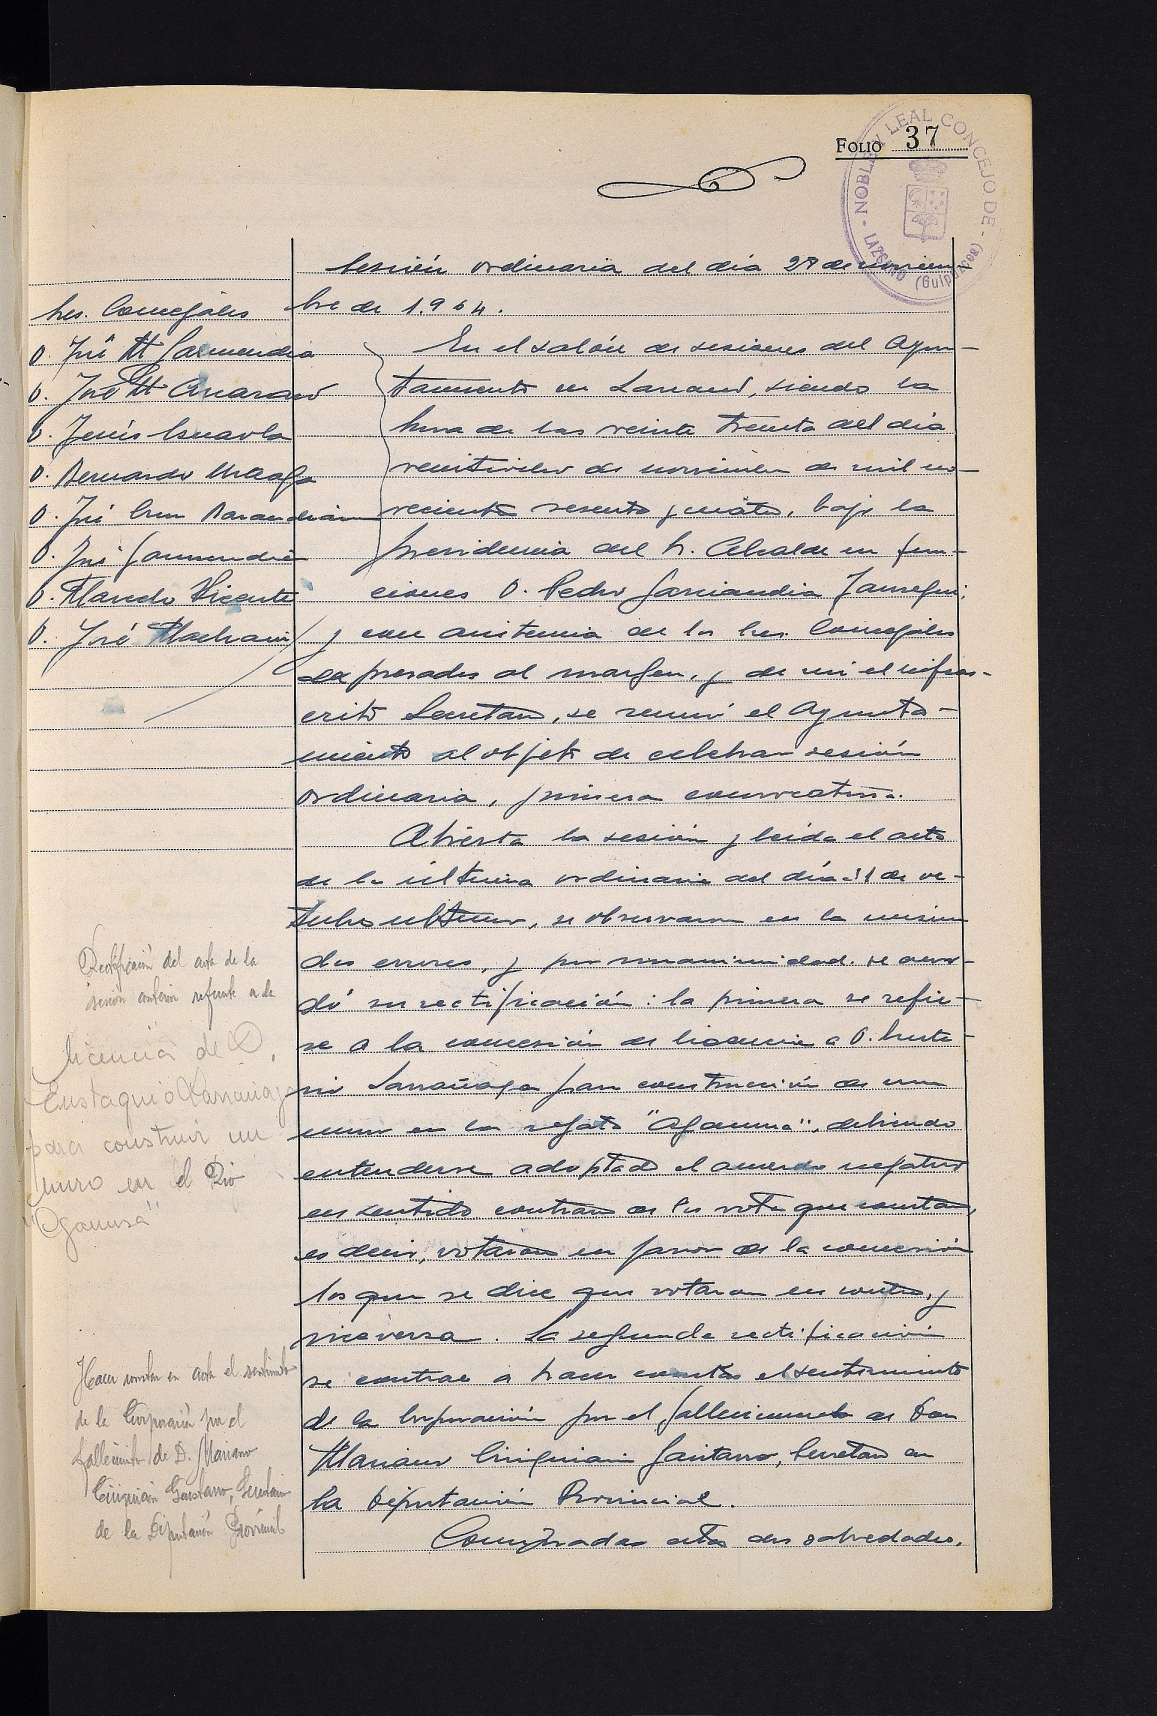 FOLIO 37
NOBLE Y LEAL CONCEJO DE
LAZCANO (Guipúzcoa)
Sesión ordinaria del día 27 de noviem
bre de 1.964.
Sres. Concejales
D. José Mª Garmendia
D. José Mª
D. Jesús
D. Bernardo
D. José Cruz Barandiarán
D. José Garmendia
D. Marcelo Vicente
D. José
En el salón de sesiones del Ayun-
tamiento de Lazcano, siendo la
hora de las veinte treinta del día
veintisiete de noviembre de mil no-
veciento sesenta y cuatro, bajo la
presidencia del Sr. Alcalde en fun-
ciones D. Pedro Garciandia Jauregui,
y con asistencia de los Sres. Concejales
expresados al margen, y de mi el infras-
crito Secretario, se reunió el Ayunta-
miento al objeto de celebrar sesión
ordinaria, primera convocatoria.
Abierta la sesión y leída el acta
de la última ordinaria del día 31 de oc-
tubre último, se observaron en la misma
dos errores, y por unanimidad se acor-
dó su rectificación: la primera se refie-
re a la concesión de licencia a D. Eusta-
quio Larrañaga para construcción de un
muro en la regata "Agaunza", debiendo
entenderse adoptado el acuerdo negativo
en sentido contrario de los votos que constan,
es decir, votaron en favor de la concesión
los que se dice que votaron en contra, y
viceversa. La segunda rectificación
se contrae a hacer constar el sentimiento
de la Corporación por el fallecimiento de Don
Mariano Ciriquiain Gaiztarro, Secretario de
la Diputación Provincial.
Rectificación del acta de la
sesión anterior referente a la
licencia de D.
Eustaquio Larrañaga
para construir un
muro en el Rio
"Agaunza"
Hacer constar en acta el sentimiento
de la Corporación por el
fallecimiento de D. Mariano
Ciriquiain Gaiztarro, Secretario
de la Diputación Provincial